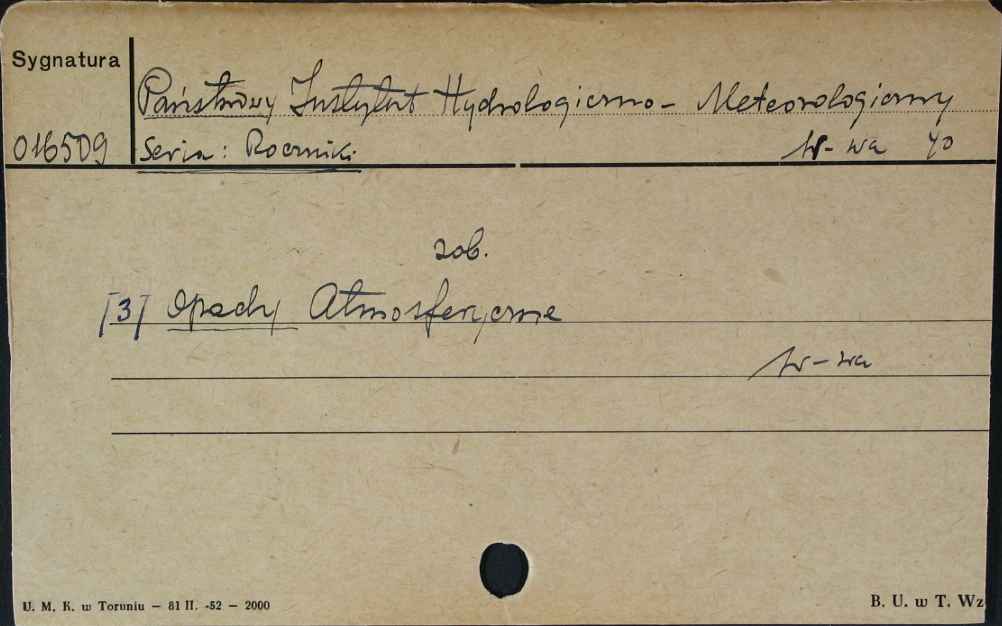 Sygnatura
Państwowy Instytut Hydrologiczno-Meteorologiczny
016509 Seria: Roczniki W-wa 70
zob.
[3] Opady Atmosferyczne
W-wa
U. M. K. w Toruniu – 81 II. -52 – 2000 B. U. w T. Wz